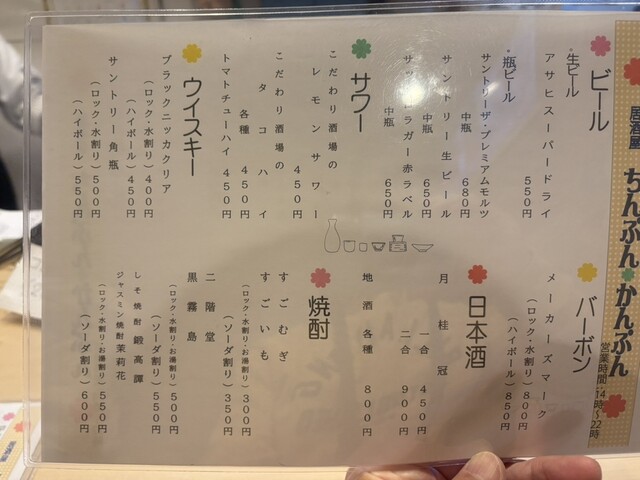 居酒屋 ちんぷん・かんぷん
営業時間:14時～22時
ビール
・生ビール
アサヒスーパードライ
550円
・瓶ビール
サントリーザ・プレミアムモルツ
中瓶 680円
サントリー生ビール
中瓶 650円
サッポロラガー赤ラベル
中瓶 650円
サワー
こだわり酒場の
レモンサワー
450円
こだわり酒場の
タコハイ
各種 450円
トマトチューハイ 450円
ウイスキー
ブラックニッカクリア
(ロック・水割り)400円
(ハイボール)450円
サントリー角瓶
(ロック・水割り)500円
(ハイボール)550円
バーボン
メーカーズマーク
(ロック・水割り)800円
(ハイボール)850円
日本酒
月桂冠
一合 450円
二合 900円
地酒各種 800円
焼酎
すごむぎ
すごいも
(ロック・水割り・お湯割り)300円
(ソーダ割り)350円
二階堂
黒霧島
(ロック・水割り・お湯割り)500円
(ソーダ割り)550円
しそ焼酎 鍛高譚
ジャスミン焼酎 茉莉花
(ロック・水割り・お湯割り)550円
(ソーダ割り)600円